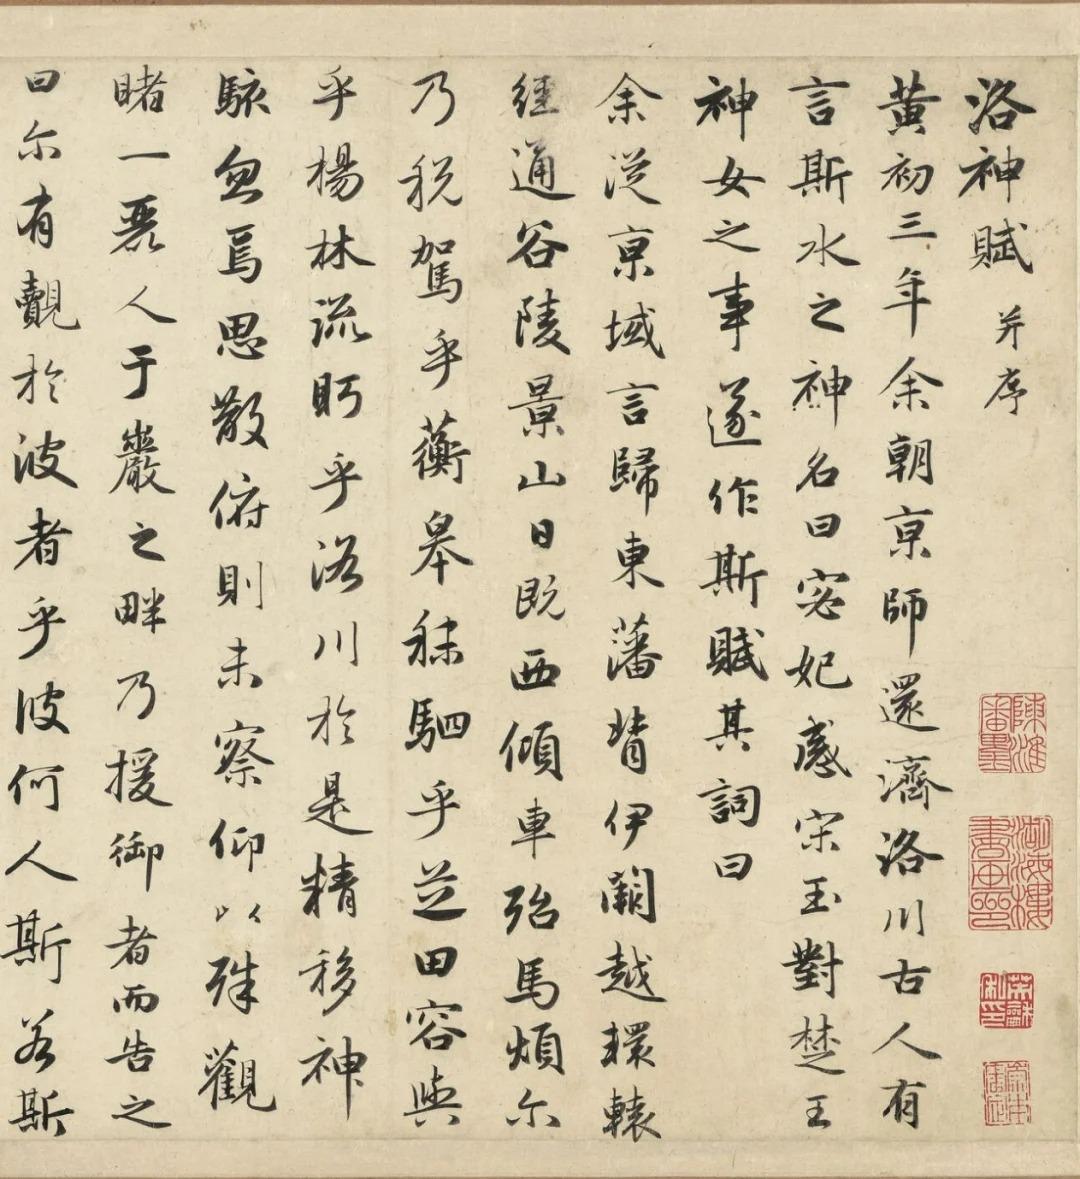 洛神賦 并序
黃初三年余朝京師還濟洛川古人有
言斯水之神名曰宓妃感宋玉對楚王
神女之事遂作斯賦其詞曰
余從京域言歸東藩背伊闕越轘轅
經通谷陵景山日既西傾車殆馬煩尓
乃稅駕乎蘅皋秣駟乎芝田容與
乎楊林流眄乎洛川於是精移神
駭忽焉思散俯則未察仰以殊觀
睹一麗人于巖之畔乃援御者而告之
曰尓有覿於彼者乎彼何人斯若斯